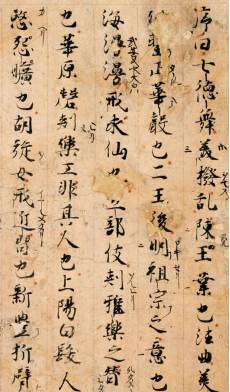 序曰七德舞美撥乱陳王業也法曲美
列聖正華聲也二王後明祖宗之意也
海漫漫戒求仙也立部伎刺雅樂之替
也華原磬刺樂工非其人也上陽白髮人
愍怨曠也胡旋女戒近習也新豐折臂